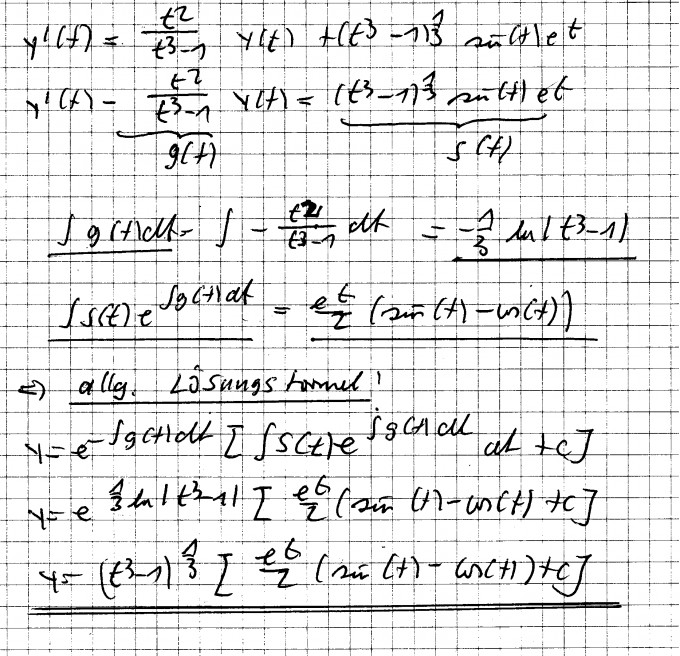 y'(t) = t²/(t³-1) y(t) + (t³-1)^(1/3) sin(t) e^t
y'(t) - t²/(t³-1) y(t) = (t³-1)^(1/3) sin(t) e^t
g(t) s(t)
∫g(t)dt = ∫ - t²/(t³-1) dt = -1/3 ln|t³-1|
∫s(t) e^(∫g(t)dt) = e^t/2 (sin(t) - cos(t))
=> allg. Lösungsformel!
y = e^(-∫g(t)dt) [∫s(t) e^(∫g(t)dt) dt + C]
y = e^(1/3 ln|t³-1|) [e^t/2 (sin(t) - cos(t) + C]
y = (t³-1)^(1/3) [e^t/2 (sin(t) - cos(t)) + C]